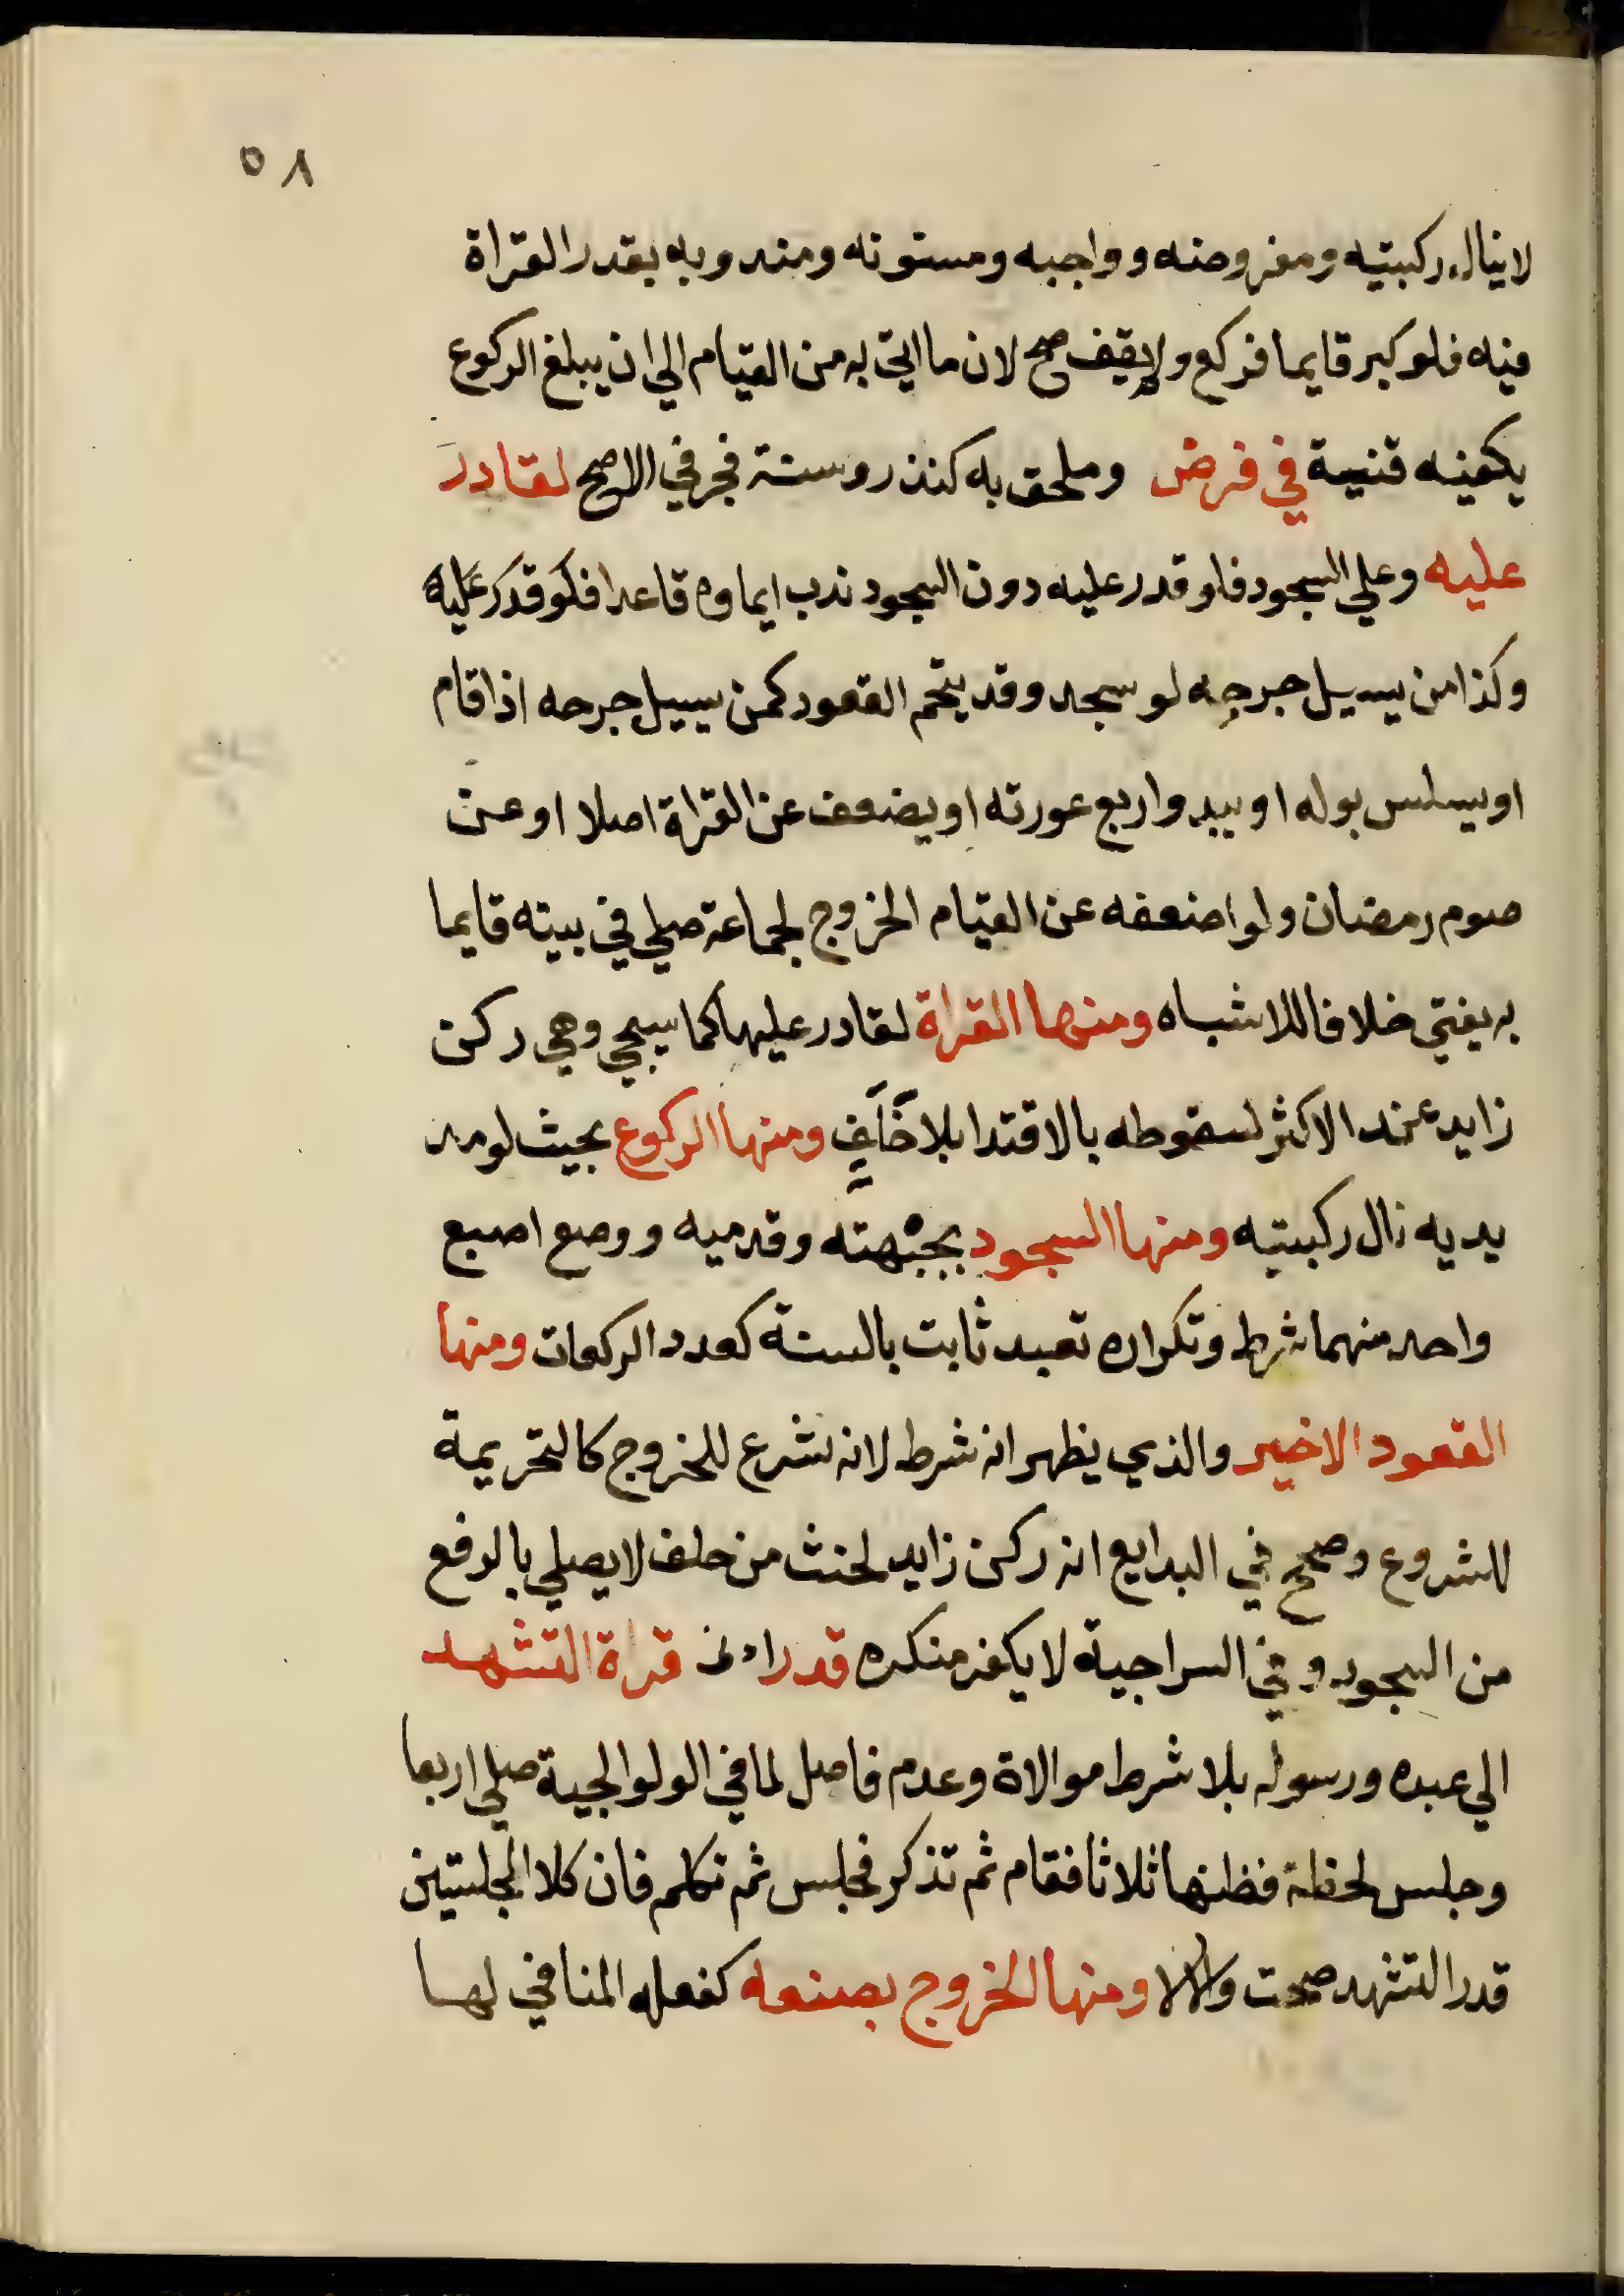 ٥٨
لا ينال ركبتيه ومفروضه وواجبه ومسنونه ومندوبه بقدر القراة
فيه فلو كبر قايما فركع ولم يقف صح لان ما اتي به من القيام الي ان يبلغ الركوع
يكفيه قنية في فرض وملحق به كنذر وسنة فجر في الاصح لقادر
عليه وعلي السجود فلو قدر عليه دون السجود ندب ايماوه قاعدا فلو قدر عليه
وكذا من يسيل جرحه لو سجد وقد يتحتم القعود كمن يسيل جرحه اذا قام
او يسلس بوله او يبدو اربع عورته او يضعف عن القراة اصلا او عن
صوم رمضان ولو اضعفه عن القيام الخروج لجماعة صلي في بيته قايما
به يفتي خلافا للاشباه ومنها القراة لقادر عليها كما سيجي وهي ركن
زايد عند الاكثر لسقوطه بالاقتدا بلا خلف ومنها الركوع بحيث لو مد
يديه نال ركبتيه ومنها السجود بجبهته وقدميه ووضع اصبع
واحد منهما شرط وتكراره تعبد ثابت بالسنة كعدد الركعات ومنها
القعود الاخير والذي يظهر انه شرط لانه شرع للخروج كالتحريمة
للشروع وصحح في البدايع انه ركن زايد لحنث من حلف لا يصلي بالرفع
من السجود وفي السراجية لا يكفر منكره قدر ادني قراة التشهد
الي عبده ورسوله بلا شرط موالاة وعدم فاصل لما في الولوالجية صلي اربعا
وجلس لحظة فظنها ثلاثا فقام ثم تذكر فجلس ثم تكلم فان كلا الجلستين
قدر التشهد صحت والا لا ومنها الخروج بصنعه كفعله المنافي لها